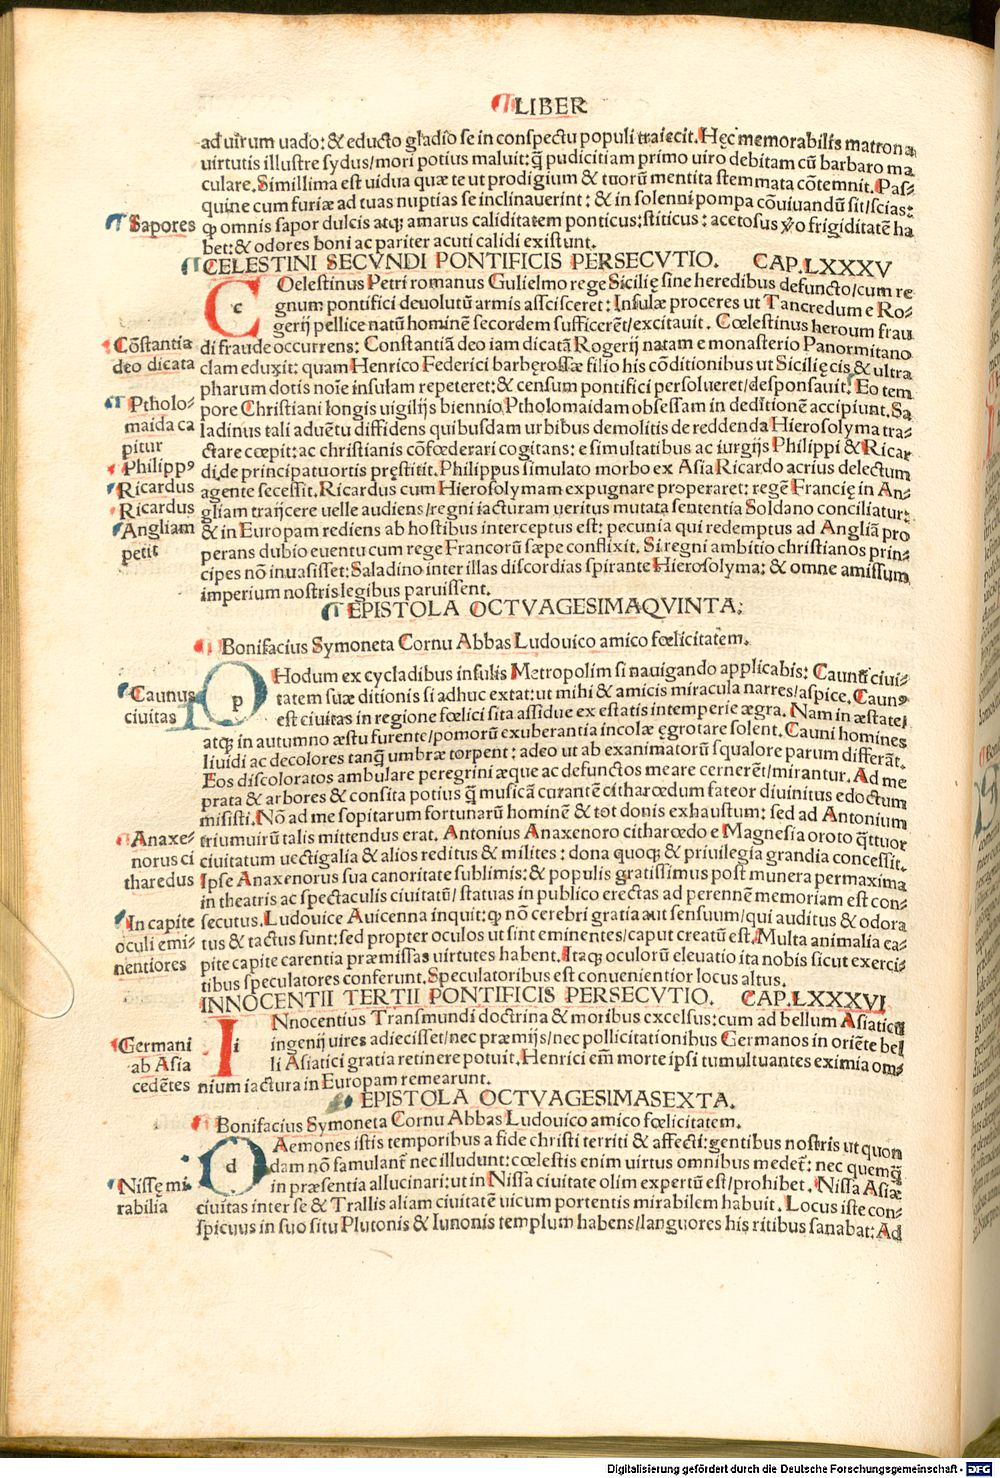 LIBER
ad uirum uado: & educto gladio se in conspectu populi traiecit. Hęc memorabilis matrona
uirtutis illustre sydus/mori potius maluit: q̃ pudicitiam primo uiro debitam cũ barbaro ma
culare. Simillima est uidua quæ te ut prodigium & tuorũ mentita stemmata cõtemnit. Pas-
quine cum furiæ ad tuas nuptias se inclinauerint: & in solenni pompa cõuiuandũ sit/scias:
Sapores
ꝙ omnis sapor dulcis atq; amarus caliditatem ponticus: stiticus: acetosus ỹo frigiditatẽ ha
bet: & odores boni ac pariter acuti calidi existunt.
CELESTINI SECVNDI PONTIFICIS PERSECVTIO. CAP.LXXXV
c
Oelestinus Petri romanus Gulielmo rege Sicilię sine heredibus defuncto/cum re
gnum pontifici deuolutũ armis asscisceret: Insulæ proceres ut Tancredum e Ro-
gerij pellice natũ hominẽ secordem sufficerẽt/excitauit. Cœlestinus heroum frau
Cõstantia
deo dicata
di fraude occurrens: Constantiã deo iam dicatã Rogerij natam e monasterio Panormitano
clam eduxit: quam Henrico Federici barbęrossæ filio his cõditionibus ut Sicilię cis & ultra
pharum dotis noĩe insulam repeteret: & censum pontifici persolueret/desponsauit. Eo tem
Ptholo-
maida ca
pitur
pore Christiani longis uigilijs biennio Ptholomaidam obsessam in deditionẽ accipiunt. Sa
ladinus tali aduẽtu diffidens quibusdam urbibus demolitis de reddenda Hierosolyma tra-
ctare cœpit: ac christianis cõfœderari cogitans: e simultatibus ac iurgijs Philippi & Ricar
Philippꝰ
Ricardus
Ricardus
Angliam
petit
di de principatu ortis pręstitit. Philippus simulato morbo ex Asia Ricardo acrius delectum
agente secessit. Ricardus cum Hierosolymam expugnare properaret: regẽ Francię in An-
gliam traijcere uelle audiens/regni iacturam ueritus mutata sententia Soldano conciliatur:
& in Europam rediens ab hostibus interceptus est: pecunia qui redemptus ad Angliã pro
perans dubio euentu cum rege Francorũ sæpe conflixit. Si regni ambitio christianos prin-
cipes nõ inuasisset: Saladino inter illas discordias spirante Hierosolyma: & omne amissum
imperium nostris legibus paruissent.
EPISTOLA OCTVAGESIMAQVINTA:
Bonifacius Symoneta Cornu Abbas Ludouico amico fœlicitatem.
p
Hodum ex cycladibus insulis Metropolim si nauigando applicabis: Caunũ ciui-
Caunus
ciuitas
tatem suæ ditionis si adhuc extat: ut mihi & amicis miracula narres/aspice. Caunꝰ
est ciuitas in regione fœlici sita assidue ex estatis intemperie ægra. Nam in æstate/
atq; in autumno æstu furente/pomorũ exuberantia incolæ ęgrotare solent. Cauni homines
liuidi ac decolores tanq̃ umbræ torpent: adeo ut ab exanimatorũ squalore parum differãt.
Eos discoloratos ambulare peregrini æque ac defunctos meare cernerẽt/mirantur. Ad me
prata & arbores & consita potius q̃ musicã curantẽ citharœdum fateor diuinitus edoctum
misisti. Nõ ad me sopitarum fortunarũ hominẽ & tot donis exhaustum: sed ad Antonium
Anaxe-
norus ci
tharedus
triumuirũ talis mittendus erat. Antonius Anaxenoro citharœdo e Magnesia oroto q̃ttuor
ciuitatum uectigalia & alios reditus & milites: dona quoq; & priuilegia grandia concessit.
Ipse Anaxenorus sua canoritate sublimis: & populis gratissimus post munera permaxima
in theatris ac spectaculis ciuitatũ/statuas in publico erectas ad perennẽ memoriam est con-
In capite
oculi emi-
nentiores
secutus. Ludouice Auicenna inquit: ꝙ nõ cerebri gratia aut sensuum/qui auditus & odora
tus & tactus sunt: sed propter oculos ut sint eminentes/caput creatũ est. Multa animalia ca-
pite capite carentia præmissas uirtutes habent. Itaq; oculorũ eleuatio ita nobis sicut exerci-
tibus speculatores conferunt. Speculatoribus est conuenientior locus altus.
INNOCENTII TERTII PONTIFICIS PERSECVTIO. CAP.LXXXVI
i
Nnocentius Transmundi doctrina & moribus excelsus: cum ad bellum Asiaticũ
Germani
ab Asia
cedẽtes
ingenij uires adiecisset/nec præmijs/nec pollicitationibus Germanos in oriẽte bel
li Asiatici gratia retinere potuit. Henrici em̃ morte ipsi tumultuantes eximia om-
nium iactura in Europam remearunt.
EPISTOLA OCTVAGESIMASEXTA.
Bonifacius Symoneta Cornu Abbas Ludouico amico fœlicitatem.
d
Aemones istis temporibus a fide christi territi & affecti: gentibus nostris ut quon
dam nõ famulant̃ nec illudunt: cœlestis enim uirtus omnibus medet̃: nec quemq̃
Nissę mi
rabilia
in præsentia allucinari: ut in Nissa ciuitate olim expertũ est/prohibet. Nissa Asiæ
ciuitas inter se & Trallis aliam ciuitatẽ uicum portentis mirabilem habuit. Locus iste con-
spicuus in suo situ Plutonis & Iunonis templum habens/languores his ritibus sanabat: Ad
Digitalisierung gefördert durch die Deutsche Forschungsgemeinschaft - DFG